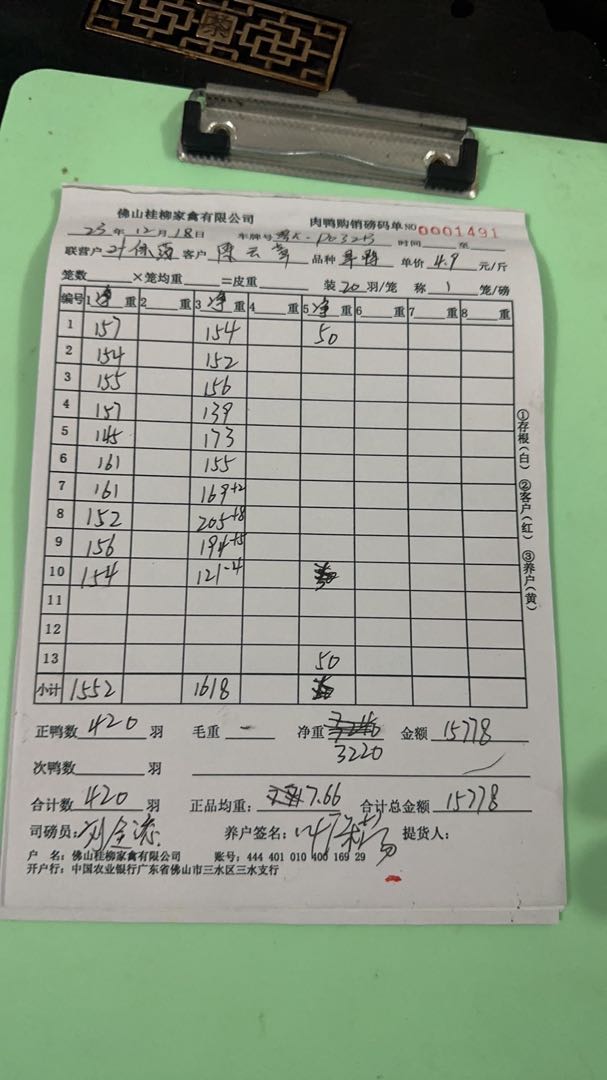 茶
佛山桂柳家禽有限公司 肉鸭购销磅码单 NO 0001491
23年12月18日 车牌号 时间 至
联营户 叶 客户 陈云 品种 单价 4.9 元/斤
笼数 ×笼均重 =皮重 装 20 羽/笼 称 1 笼/磅
编号 1 净 重 2 重 3 净 重 4 重 5 净 重 6 重 7 重 8 重
1 157 154 50
2 154 152
3 155 156
4 157 139
5 145 173
6 161 155
7 161 169+2
8 152 205+8
9 156 194+5
10 154 121-4
11
12
13 50
小计 1552 1618
正鸭数 420 羽 毛重 — 净重 3220 金额 15778
次鸭数 羽
合计数 420 羽 正品均重: 7.66 合计总金额 15778
司磅员: 刘金 养户签名: 叶 提货人:
户 名: 佛山桂柳家禽有限公司 账号: 444 401 010 400 169 29
开户行: 中国农业银行广东省佛山市三水区三水支行
①存根(白) ②客户(红) ③养户(黄)